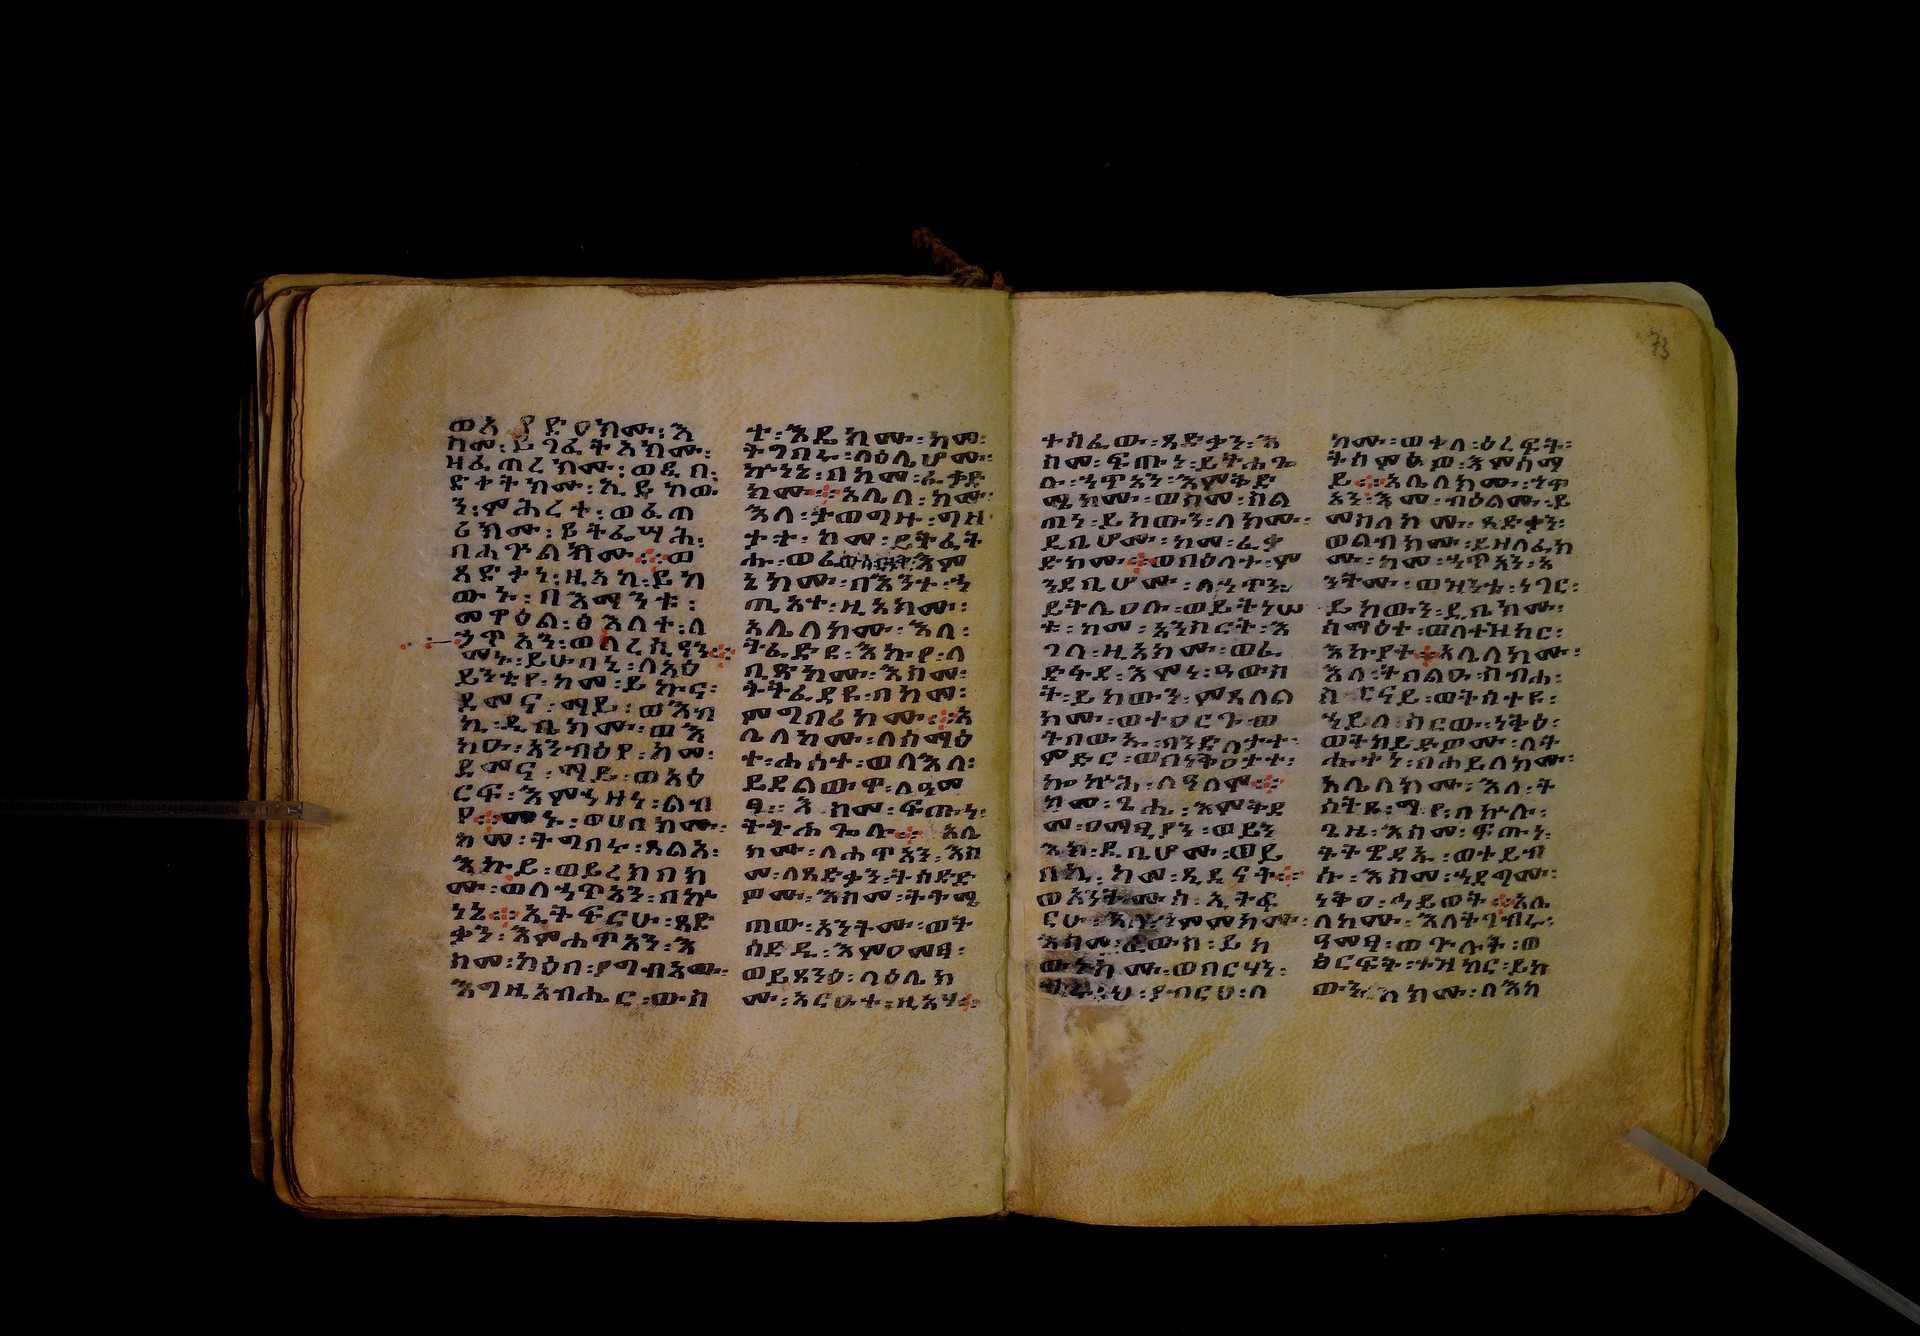 ወአይድዐክሙ፡እ
ከመ፡ይገፈትአክሙ፡
ዘፈጠረክሙ፡ወዲበ፡
ድቀትክሙ፡ኢይከው
ን፡ምሕረተ፡ወፈጣ
ሪክሙ፡ይትፌሣሕ፡
በሐጕልክሙ።ወ
ጻድቃነ፡ዚአከ፡ይከ
ውኑ፡በእማንቱ፡
መዋዕል፡ፅእለተ፡ለ
ኃጥአን፡ወለረሲዓን።
መኑ፡ይሁበኒ፡ለአዕ
ይንቲየ፡ከመ፡ይኩና፡
ደመና፡ማይ፡ወእብ
ኪ፡ዲቤክሙ፡ወእ
ክዑ፡አንብዕየ፡ከመ፡
ደመና፡ማይ፡ወአዕ
ርፍ፡እምኀዘነ፡ልብ
የ።መኑ፡ወሀበክሙ፡
ከመ፡ትግበሩ፡ጽልአ፡
እኩይ፡ወይረክበክ
ሙ፡ወለኃጥአን፡በኵ
ነኔ።ኢትፍርሁ፡ጻድ
ቃን፡እምሐጥአን፡እ
ስመ፡ካዕበ፡ያግብኦሙ፡
እግዚአብሔር፡ውስ
ተ፡እዴክሙ፡ከመ፡
ትግበሩ፡ላዕሌሆሙ፡
ኵነኔ፡በከመ፡ፈቀድ
ክሙ።አሌለ፡ክሙ፡
እለ፡ታወግዙ፡ግዘ
ታተ፡ከመ፡ይትፈት
ሑ፡ወፈውስ፡ርሑቅ፡እም
ኔክሙ፡በእንተ፡ኃ
ጢአተ፡ዚአክሙ፡
አሌለክሙ፡እለ፡
ትፈድዩ፡እኩየ፡ለ
ቢጽክሙ፡እስመ፡
ትትፈደዩ፡በከመ፡
ምግባሪክሙ።አ
ሌለክሙ፡ለሰማዕ
ተ፡ሐሰተ፡ወለእለ፡
ይደልውዋ፡ለዓመ
ፃ፡እስመ፡ፍጡነ፡
ትትሐጐሉ።አሌ
ክሙ፡ለሐጥአን፡እስ
መ፡ለጻድቃን፡ትሰድድ
ዎሙ፡እስመ፡ትትሜ
ጠው፡አንትሙ፡ወት
ሰድዱ፡እምዐመፃ፡
ወይጸንዕ፡ላዕሌክ
ሙ፡አርዑተ፡ዚአሃ።
ተሰፈው፡ጻድቃን፡እ
ስመ፡ፍጡነ፡ይትሐጐ
ሉ፡ኃጥአን፡እምቅድ
ሜክሙ፡ወስመ፡ስል
ጠነ፡ይከውን፡ለክሙ፡
ዲቤሆሙ፡ከመ፡ፈቃ
ድክሙ።ወበዕለተ፡ም
ንደቤሆሙ፡ለኃጥን፡
ይትሌዐሉ፡ወይትነሡ
ቱ፡ከመ፡አንስርት፡እ
ገለ፡ዚአክሙ፡ወፈ
ድፋደ፡እምነ፡ዓውስ
ት፡ይከውን፡ምጽለል
ክሙ፡ወተዐርጉ፡ወ
ትበውኡ፡በንቅዐታተ፡
ምድር፡ወበንቅዐታተ፡
ኰኵሕ፡ለዓለም።
ከመ፡ጊሔ፡እምቅድ
መ፡ዐመፂያን፡ወይን
እኩ፡ዲቤሆሙ፡ወይ
በኪ፡ከመ፡ዴዴናት።
ወአንትሙሰ፡ኢትፍ
ርሁ፡
እስመ፡ፈውስ፡ይከ
ውነክሙ፡ወብርሃነ፡
ያብርህ፡ለ
ክሙ፡ወቀለ፡ዕረፍት፡
ትሰምዕዎ፡እምሰማ
ይ።አሌለክሙ፡ኃጥ
አን፡እመ፡ብዕልሙ፡ይ
መስለክሙ፡ጻድቃን፡
ወልብክሙ፡ይዘለፈክ
ሙ፡ከመ፡ኃጥአን፡አ
ንትሙ፡ወዝንቱ፡ነገር፡
ይከውን፡ዲቤክሙ፡
ሰማዕተ፡ወለተዝከር፡
እኩያት።አሌለክሙ፡
እለ፡ትበልዑ፡ስብሐ፡
ስርናይ፡ወትሰተዩ፡
ኃይለ፡ስርው፡ነቅዕ፡
ወትከይድዎሙ፡ለት
ሑተነ፡በሐይለክሙ፡
አሌለክሙ፡እለ፡ት
ሰትዩ፡ማየ፡በኵሉ፡
ጊዜ፡እስመ፡ፍጡነ፡
ትትዌዳኡ፡ወተይብ
ሱ፡እስመ፡ኃደግሙ፡
ነቅዐ፡ሓይወት።አሌ
ለክሙ፡እለትገብሩ፡
ዓመፃ፡ወጕሉት፡ወ
ፅርፍት፡ተዝከር፡ይከ
ውን፡ለክሙ፡በእከ